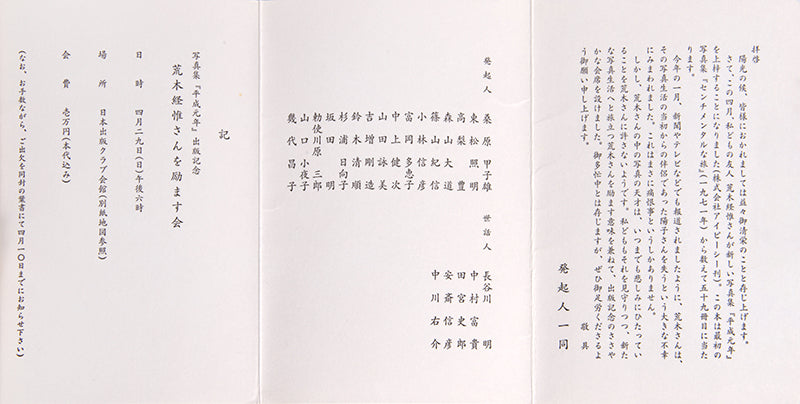 拝啓
陽光の候、皆様におかれましては益々御清栄のことと存じ上げます。
さて、この四月、私どもの友人 荒木経惟さんが新しい写真集『平成元年』
を上梓することになりました(株式会社アイピーシー刊)。この本は最初の
写真集『センチメンタルな旅』(一九七一年)から数えて五十九冊目に当た
ります。
今年の一月、新聞やテレビなどでも報道されましたように、荒木さんは、
その写真生活の当初からの伴侶であった陽子さんを失うという大きな不幸
にみまわれました。これはまさに痛恨事というしかありません。
しかし、荒木さんの中の写真の天才は、いつまでも悲しみにひたってい
ることを荒木さんに許さないようです。私どももそれを見守りつつ、新た
な写真生活へと旅立つ荒木さんを励ます意味を兼ねて、出版記念のささや
かな会席を設けました。御多忙中とは存じますが、ぜひ御足労くださるよ
う御願い申し上げます。
敬具
発起人一同
発起人
桑原甲子雄
東松照明
高梨豊
森山大道
篠山紀信
小林信彦
富岡多恵子
中上健次
山田詠美
吉増剛造
鈴木清順
杉浦日向子
坂田明
勅使川原三郎
山口小夜子
幾代昌子
世話人
長谷川明
中村富貴
田宮史郎
安斎信彦
中川右介
記
写真集『平成元年』出版記念
荒木経惟さんを励ます会
日時 四月二九日(日)午後六時
場所 日本出版クラブ会館(別紙地図参照)
会費 壱万円(本代込み)
(なお、お手数ながら、ご出欠を同封の葉書にて四月一〇日までにお知らせ下さい)